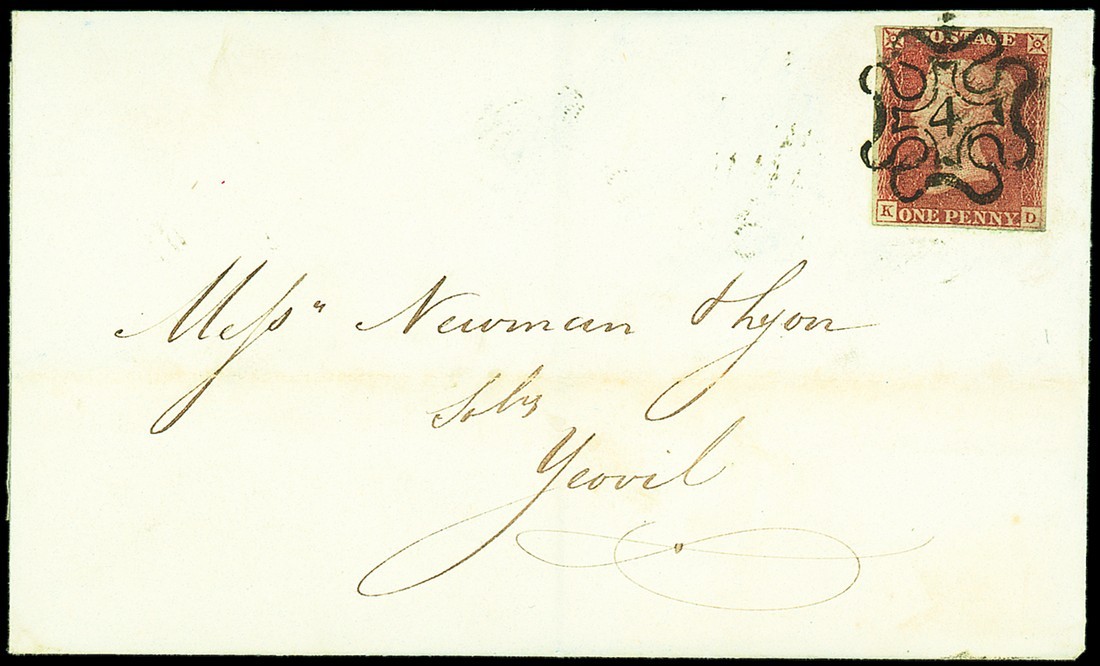 POSTAGE
4
K ONE PENNY D
Messrs Newman & Lyon
Solrs
Yeovil